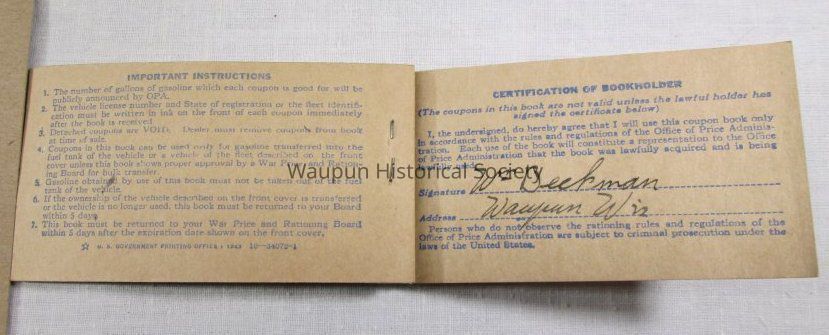 IMPORTANT INSTRUCTIONS
1. The number of gallons of gasoline which each coupon is good for will be
publicly announced by OPA.
2. The vehicle license number and State of registration or the fleet identifi-
cation must be written in ink on the front of each coupon immediately
after the book is received.
3. Detached coupons are VOID. Dealer must remove coupons from book
at time of sale.
4. Coupons in this book can be used only for gasoline transferred into the
fuel tank of the vehicle or a vehicle of the fleet described on the front
cover unless this book shows proper approval by a War Price and Ration-
ing Board for bulk transfer.
5. Gasoline obtained by use of this book must not be taken out of the fuel
tank of the vehicle.
6. If the ownership of the vehicle described on the front cover is transferred
or the vehicle is no longer used, this book must be returned to your Board
within 5 days.
7. This book must be returned to your War Price and Rationing Board
within 5 days after the expiration date shown on the front cover.
☆ U. S. GOVERNMENT PRINTING OFFICE : 1943 16—34072-1
CERTIFICATION OF BOOKHOLDER
(The coupons in this book are not valid unless the lawful holder has
signed the certificate below)
I, the undersigned, do hereby agree that I will use this coupon book only
in accordance with the rules and regulations of the Office of Price Adminis-
tration. Each use of the book will constitute a representation to the Office
of Price Administration that the book was lawfully acquired and is being
lawfully
Signature Wm Beekman
Address Waupun Wis
Persons who do not observe the rationing rules and regulations of the
Office of Price Administration are subject to criminal prosecution under the
laws of the United States.
Waupun Historical Society